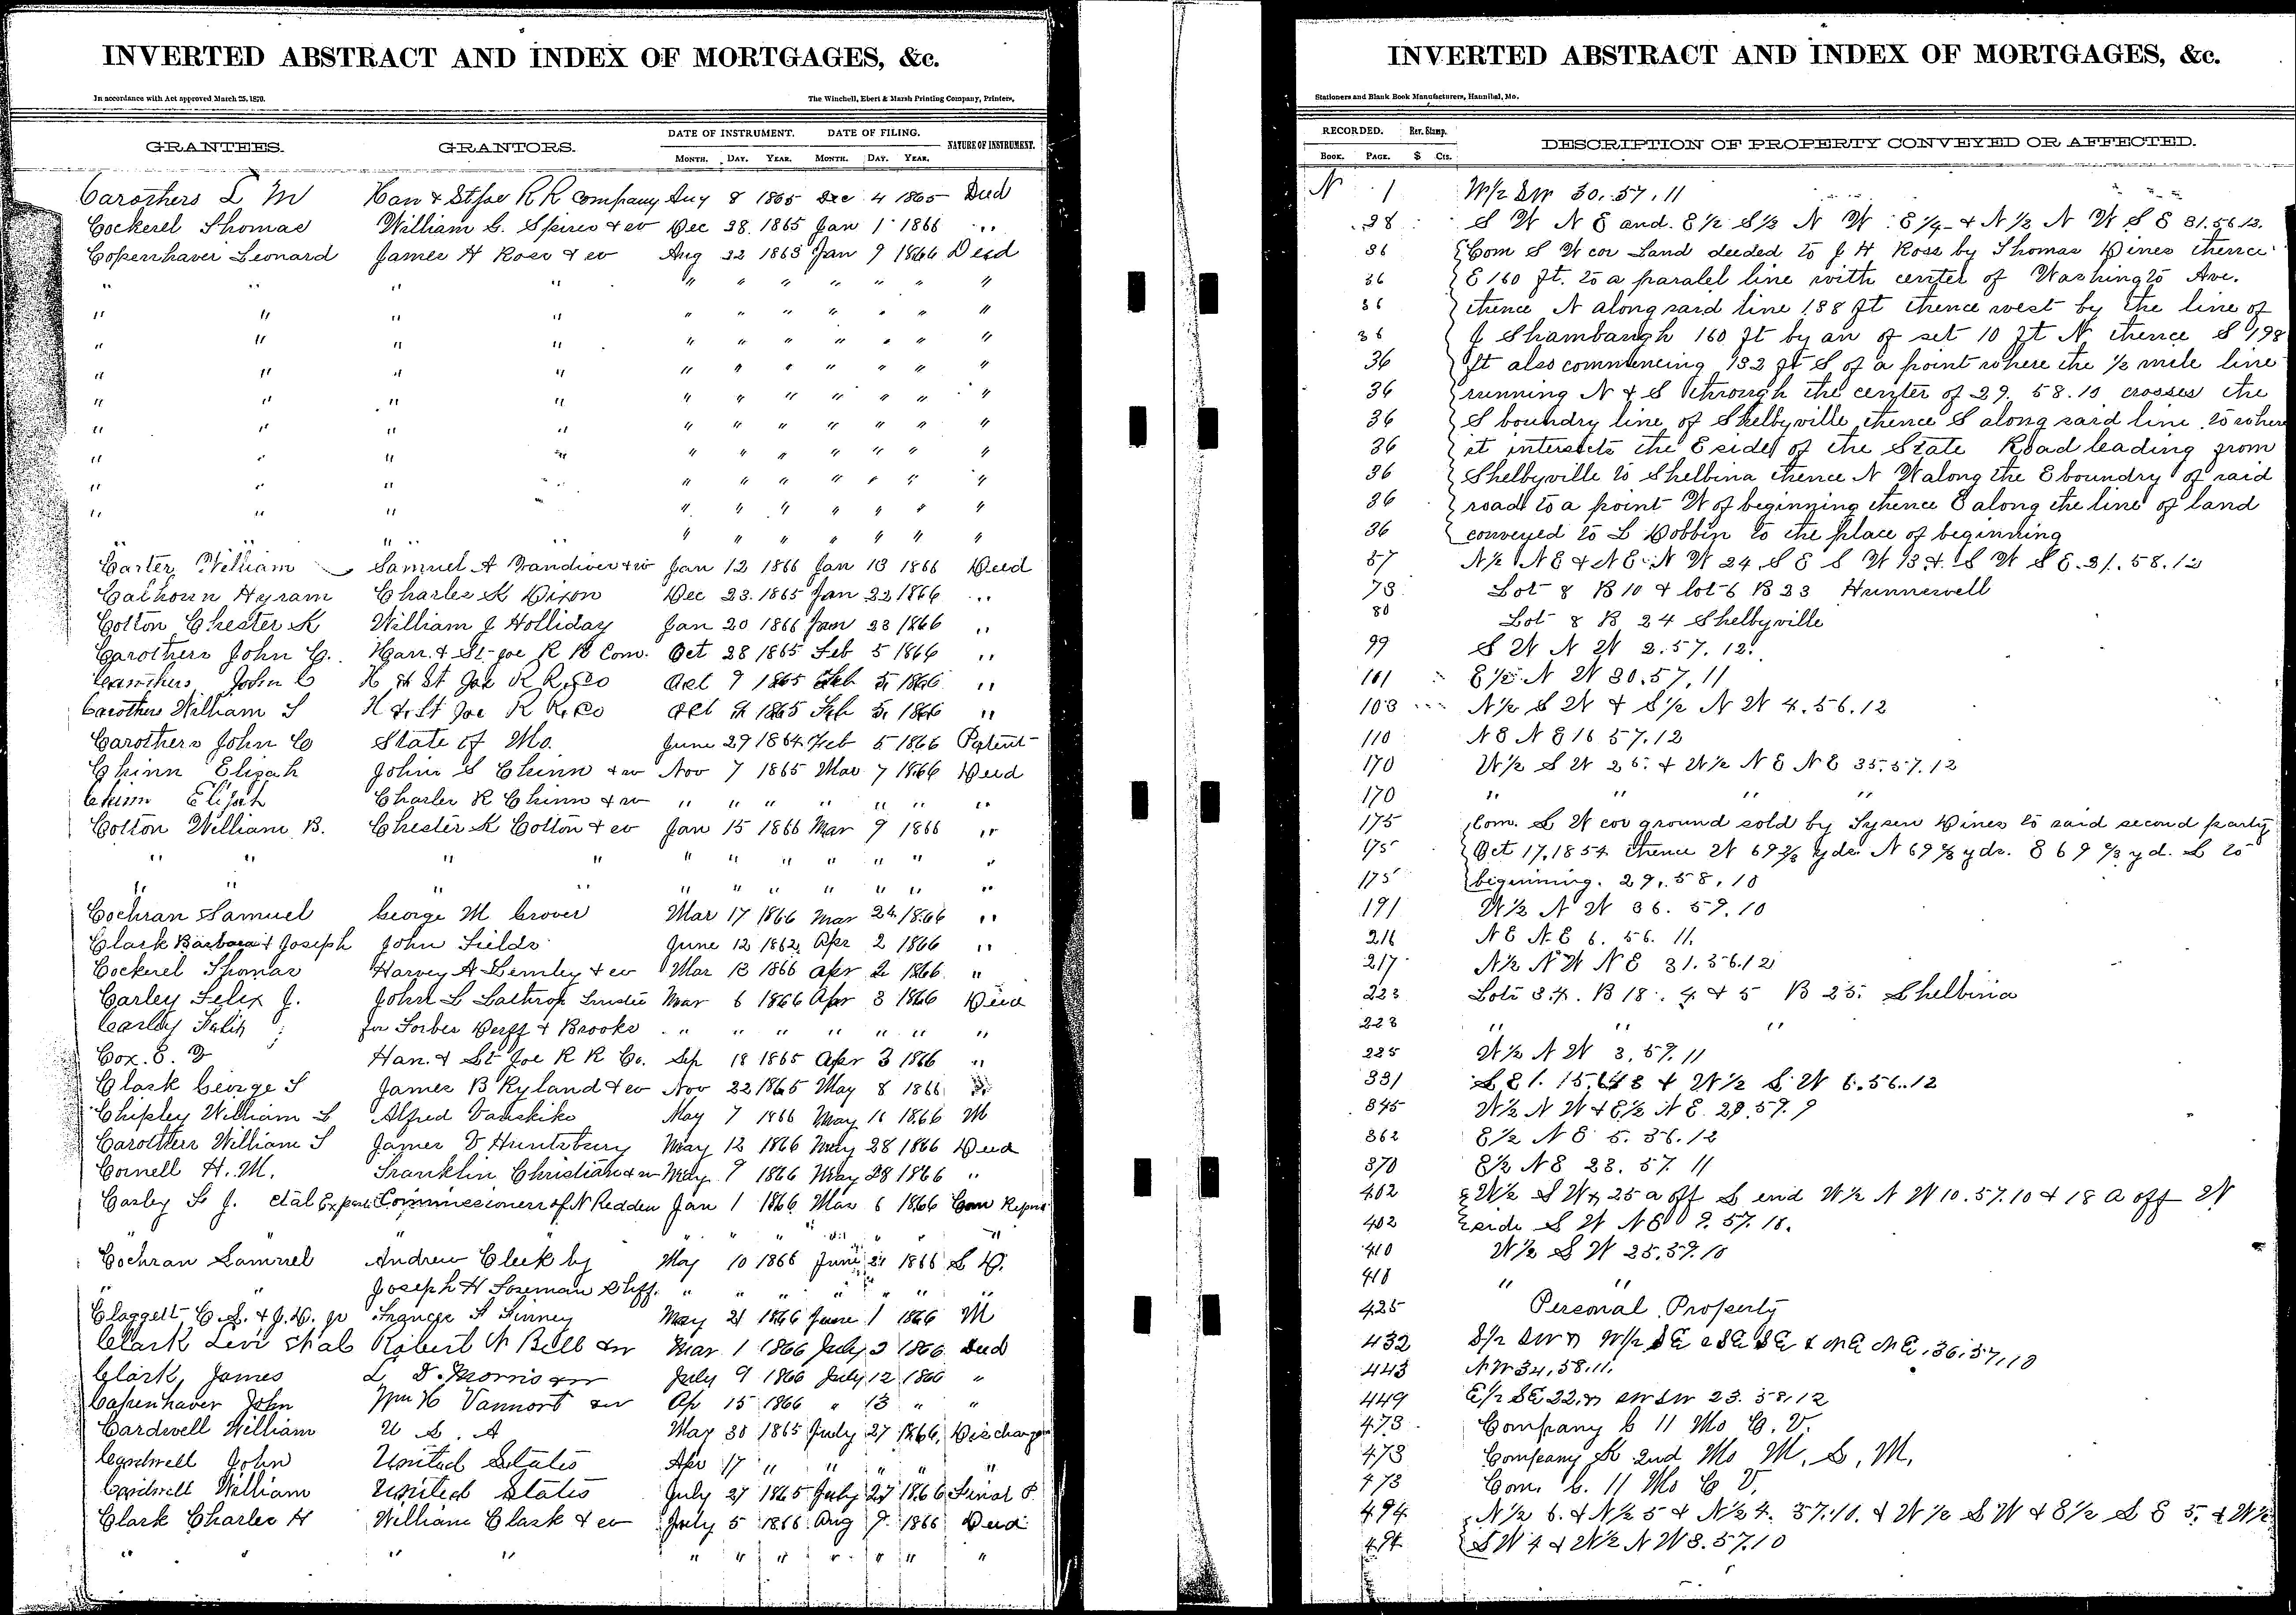 INVERTED ABSTRACT AND INDEX OF MORTGAGES, &c.
In accordance with Act approved March 25, 1870.
The Winchell, Ebert & Marsh Printing Company, Printers,
DATE OF INSTRUMENT. DATE OF FILING.
GRANTEES. GRANTORS. NATURE OF INSTRUMENT.
MONTH. DAY. YEAR. MONTH. DAY. YEAR.
Carothers L M Han & St Joe R R Company Aug 8 1865 Dec 4 1865 Deed
Cockerel Thomas William G. Spires & w Dec 28. 1865 Jan 1 1866 "
Copenhaver Leonard James H Ross & w Aug 22 1863 Jan 9 1866 Deed
" " " " " " " " " " "
" " " " " " " " " " "
" " " " " " " " " " "
" " " " " " " " " " "
" " " " " " " " " " "
" " " " " " " " " " "
" " " " " " " " " " "
" " " " " " " " " " "
" " " " " " " " " "
" " " " " " " " " "
Carter William Samuel A Vandiver & w Jan 12 1866 Jan 13 1866 Deed
Calhoun Hyram Charles K Dixon Dec 23. 1865 Jan 22 1866 "
Cotton Chester K William J Holliday Jan 20 1866 Jan 23 1866 "
Carothers John C. Han. & St Joe R R Com. Oct 28 1865 Feb 5 1866 "
Carothers John C H & St Joe R R. Co Oct 9 1865 Feb 5, 1866 "
Carothers William S H & St Joe R R. Co Oct 9 1865 Feb 5, 1866 "
Carothers John C State of Mo. June 29 1864 Feb 5 1866 Patent
Chinn Elijah John S Chinn & w Nov 7 1865 Mar 7 1866 Deed
Chinn Elijah Charles R Chinn & w " " " " " " "
Cotton William B. Chester K Cotton & w Jan 15 1866 Mar 9 1866 "
" " " " " " " " " " "
" " " " " " " " " "
Cochran Samuel George M Grover Mar 17 1866 Mar 24 1866 "
Clark Barbara & Joseph John Fields June 12 1862 Apr 2 1866 "
Cockerel Thomas Harvey A Lemley & w Mar 13 1866 Apr 2 1866 "
Carley Felix J. John L Lathrop Trustee Mar 6 1866 Apr 3 1866 Deed
Carley Felix J for Forbes & Brooks " " " " " " "
Cox. E. D Han. & St Joe R R Co. Sep 18 1865 Apr 3 1866 "
Clark George S James B Ryland & w Nov 22 1865 May 8 1866
Chipley William L Alfred Vanskike May 7 1866 May 11 1866 M
Carothers William S James D Huntsbury May 12 1866 May 28 1866 Deed
Cornell H. M. Franklin Christian & w May 9 1866 May 28 1866 "
Carley F. J. et al Exparte Commissioners of N Redden Jan 1 1866 Mar 6 1866 Com Report
" " " " " " " "
Cochran Samuel Andrew Cleek by May 10 1866 June 21 1866 S D.
" " Joseph H Foreman Shff. " " " " " " "
Claggett C. S. & J. D. jr Frances A Finney May 21 1866 June 1 1866 M
Clark Levi et al Robert N Bell & w Mar 1 1866 July 2 1866 Deed
Clark James L D. Morris & w July 9 1866 July 12 1866 "
Copenhaver John Wm H Vannort & w Ap 15 1866 " 13 " "
Cardwell William U S. A May 30 1865 July 27 1866 Discharge
Cardwell John United States Apr 17 " " " " "
Cardwell William United States July 27 1865 July 27 1866
Clark Charles H William Clark & w July 5 1866 Aug 9 1866 Deed
" " " " " " " " " " "
INVERTED ABSTRACT AND INDEX OF MORTGAGES, &c.
Stationers and Blank Book Manufacturers, Hannibal, Mo.
RECORDED. Rev. Stamp. DESCRIPTION OF PROPERTY CONVEYED OR AFFECTED.
BOOK. PAGE. $ Cts.
N 1 W/2 SW 30.57.11
28 S W N E and. E 1/2 S 1/2 N W E 1/4 & N 1/2 N W S E 31.56.12.
36 Com S W cor Land deeded to J H Ross by Thomas Dines thence
36 E 160 ft. to a paralel line with center of Washington Ave.
36 thence N along said line 188 ft thence west by the line of
36 J Shambaugh 160 ft by an of set 10 ft N thence S 198
36 ft also commencing 132 ft S of a point where the 1/2 mile line
36 running N & S through the center of 29. 58. 10 crosses the
36 S boundry line of Shelbyville thence S along said line to where
36 it intersects the E side of the State Road leading from
36 Shelbyville to Shelbina thence N W along the E boundry of said
36 road to a point W of beginning thence E along the line of land
36 conveyed to L Dobbin to the place of beginning
57 N/2 N E & N E N W 24 S E S W 13 & S W S E. 21.58.12
73 Lot 8 B 10 & lot 6 B 23 Hunnewell
80 Lot 8 B 24 Shelbyville
99 S W N W 2.57.12.
101 E 1/2 N W 30.57.11
103 N/2 S W & S/2 N W 4.56.12
110 N E N E 16 57.12
170 W/2 S W 26. & W/2 N E N E 35.57.12
170 " " " "
175 Com. S W cor ground sold by Tysen Dines to said second party
175 Oct 17, 1854 thence W 69 2/3 yds N 69 2/3 yds. E 69 2/3 yd. S to
175 beginning. 29.58.10
191 W 1/2 N W 36. 59.10
216 N E N E 6. 56. 11.
217 N/2 N W N E 31.56.12
223 Lots 3.4. B 18. 4 & 5 B 25. Shelbina
223 " " "
225 W 1/2 N W 3.59.11
331 & W 1/2 S W 6.56.12
345 W 1/2 N W & E 1/2 N E. 29.59.9
362 E 1/2 N E 5. 56.12
370 E 1/2 N E 23. 57. 11
402 W 1/2 S W & 25 a off S end W 1/2 N W 10.57.10 & 18 a off W
402 side S W N E 9.57.10.
410 W 1/2 S W 25.59.10
410 " "
425 Personal Property
432 S/2 SW & W/2 SE & SE SE & NE NE, 36,57,10
443 NW 34,58.11.
449 E/2 SE 22, & SW SW 23. 58.12
473 Company G 11 Mo C. V.
473 Company K 2nd Mo M. S. M.
473 Com. G. 11 Mo C V.
494 N 1/2 6. & N 1/2 5 & N 1/2 4. 57.10. & W 1/2 S W & E 1/2 S E 5. & W 1/2
494 S W 4 & W 1/2 N W 8.57.10